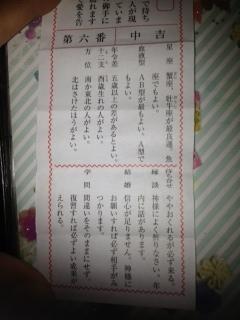 で待ち
人が現
ていま
御手に
れます
愛を告
第六番
中吉
星座 蟹座、牡牛座が最良運、魚
座でもよい。
血液型 AB型が最もよい、A型で
もよい。
年令差 五歳以上の差があるとよい。
十二支 酉歳生れの人がよい。
方位 南か東北の人がよい。
北はさけたほうがよい。
ややおくれるが必ず来る。
縁談 神様によく祈りなさい。年
内に話があります。
結婚 信心が足りません。神様に
お願いすれば必ず相手がみ
つかります。
学問 間違いをそのままにせず
復習すれば必ずよい成果が
えられる。